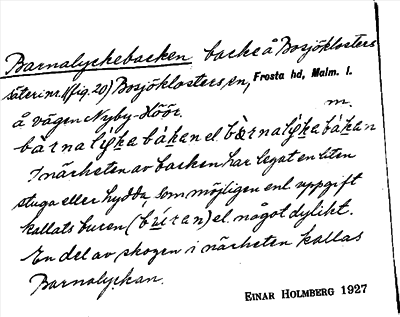 Barnalyckebacken backe å Bosjöklosters
säteri nr. 1 (fig. 20) Bosjöklosters sn, Frosta hd, Malm. l.
å vägen Nyby-Höör. m.
bàrnalýkabákan el. bàrnalýkabákan
I närheten av backen har legat en liten
stuga eller hydda, som möjligen enl. uppgift
kallats buren (búran) el. något dylikt.
En del av skogen i närheten kallas
Barnalyckan.
EINAR HOLMBERG 1927